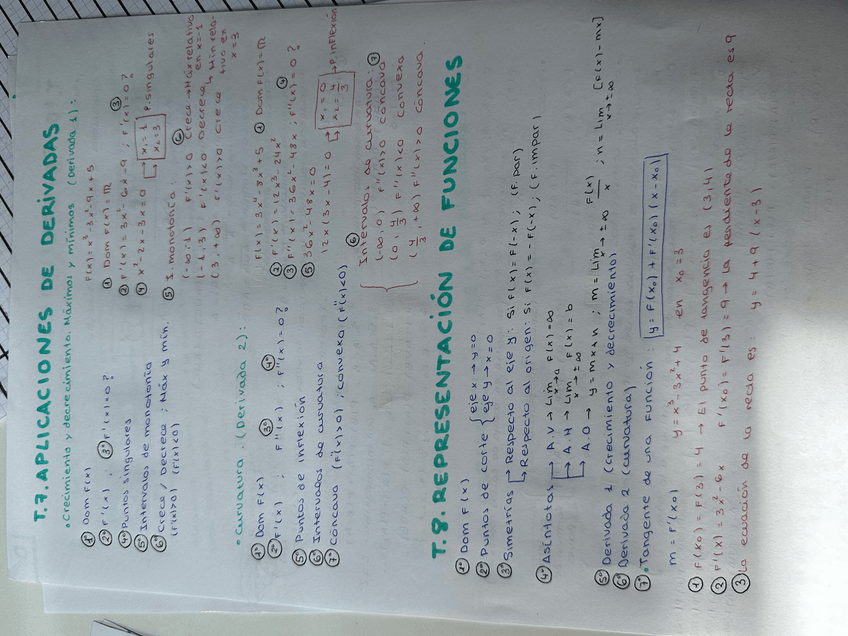 T.7. APLICACIONES DE DERIVADAS
• Crecimiento y decrecimiento. Máximos y mínimos (Derivada 1):
1º Dom F(x)
2º F'(x) ; 3º F'(x)=0?
4º Puntos singulares
5º Intervalos de monotonía
6º Crece / Decrece ; Máx y mín.
(F'(x)>0) (F'(x)<0)
F(x)=x³-3x²-9x+5
① Dom F(x)=ℝ
② F'(x)=3x²-6x-9 ; F'(x)=0? ③
④ x²-2x-3x=0 → x₁=-1 x₂=3 P. singulares
⑤ I. monotonía: ⑥
(-∞,-1) F'(x)>0 Crece → Máx relativo en x=-1
(-1,3) F'(x)<0 Decrece → Mín relativo en x=3
(3,+∞) F'(x)>0 Crece
• Curvatura. (Derivada 2):
1º Dom F(x)
2º F'(x) ; 3º F''(x) ; 4º F''(x)=0?
5º Puntos de inflexión
6º Intervalos de curvatura
7º Cóncava (F''(x)>0) ; convexa (F''(x)<0)
F(x)=3x⁴-8x³+5 ① Dom F(x)=ℝ
② F'(x)=12x³-24x²
③ F''(x)=36x²-48x ; F''(x)=0? ④
⑤ 36x²-48x=0
12x(3x-4)=0 → x₁=0 x₂=4/3 → P. inflexión
⑥ Intervalos de curvatura: ⑦
(-∞,0) F''(x)>0 cóncava
(0, 4/3) F''(x)<0 convexa
(4/3,+∞) F''(x)>0 cóncava.
T.8. REPRESENTACIÓN DE FUNCIONES
1º Dom F(x)
2º Puntos de corte { eje x → y=0
eje y → x=0
3º Simetrías → Respecto al eje y: Si F(x)=F(-x); (F. par)
→ Respecto al origen: Si F(x)=-F(-x); (F. impar)
4º Asíntotas → A.V → Lim x→a F(x)=∞
→ A.H → Lim x→±∞ F(x)=b
→ A.O → y=mx+n ; m=Lim x→±∞ F(x)/x ; n=Lim x→±∞ [F(x)-mx]
5º Derivada 1 (crecimiento y decrecimiento)
6º Derivada 2 (curvatura)
7º • Tangente de una función: y=F(x₀)+F'(x₀)(x-x₀)
m=F'(x₀) y=x³-3x²+4 en x₀=3
① F(x₀)=F(3)=4 → El punto de tangencia es (3,4)
② F'(x)=3x²-6x F'(x₀)=F'(3)=9 → la pendiente de la recta es 9
③ La ecuación de la recta es: y=4+9(x-3)